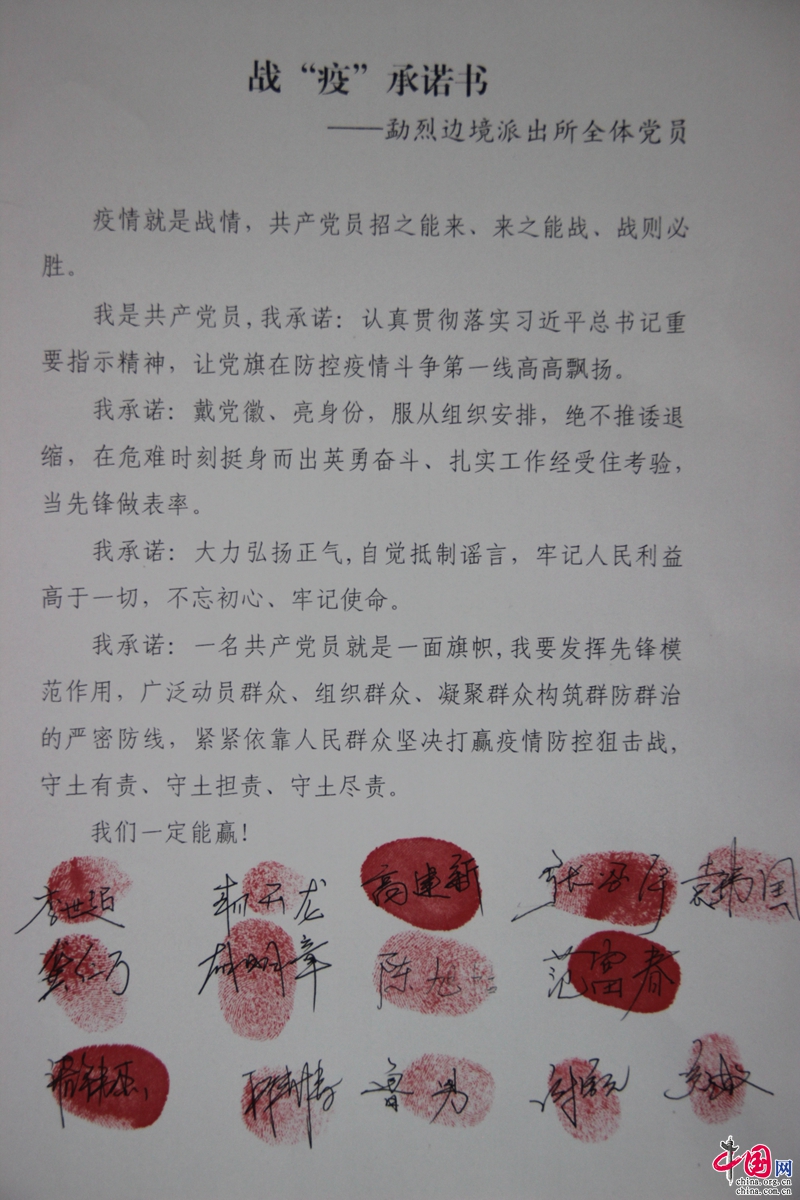 战“疫”承诺书
——勐烈边境派出所全体党员
疫情就是战情，共产党员招之能来、来之能战、战则必
胜。
我是共产党员,我承诺：认真贯彻落实习近平总书记重
要指示精神，让党旗在防控疫情斗争第一线高高飘扬。
我承诺：戴党徽、亮身份，服从组织安排，绝不推诿退
缩，在危难时刻挺身而出英勇奋斗、扎实工作经受住考验，
当先锋做表率。
我承诺：大力弘扬正气,自觉抵制谣言，牢记人民利益
高于一切，不忘初心、牢记使命。
我承诺：一名共产党员就是一面旗帜,我要发挥先锋模
范作用，广泛动员群众、组织群众、凝聚群众构筑群防群治
的严密防线，紧紧依靠人民群众坚决打赢疫情防控狙击战，
守土有责、守土担责、守土尽责。
我们一定能赢！
李世超 高建新
陈旭 范富春
鲁勇
中国网
china.org.cn
china.com.cn